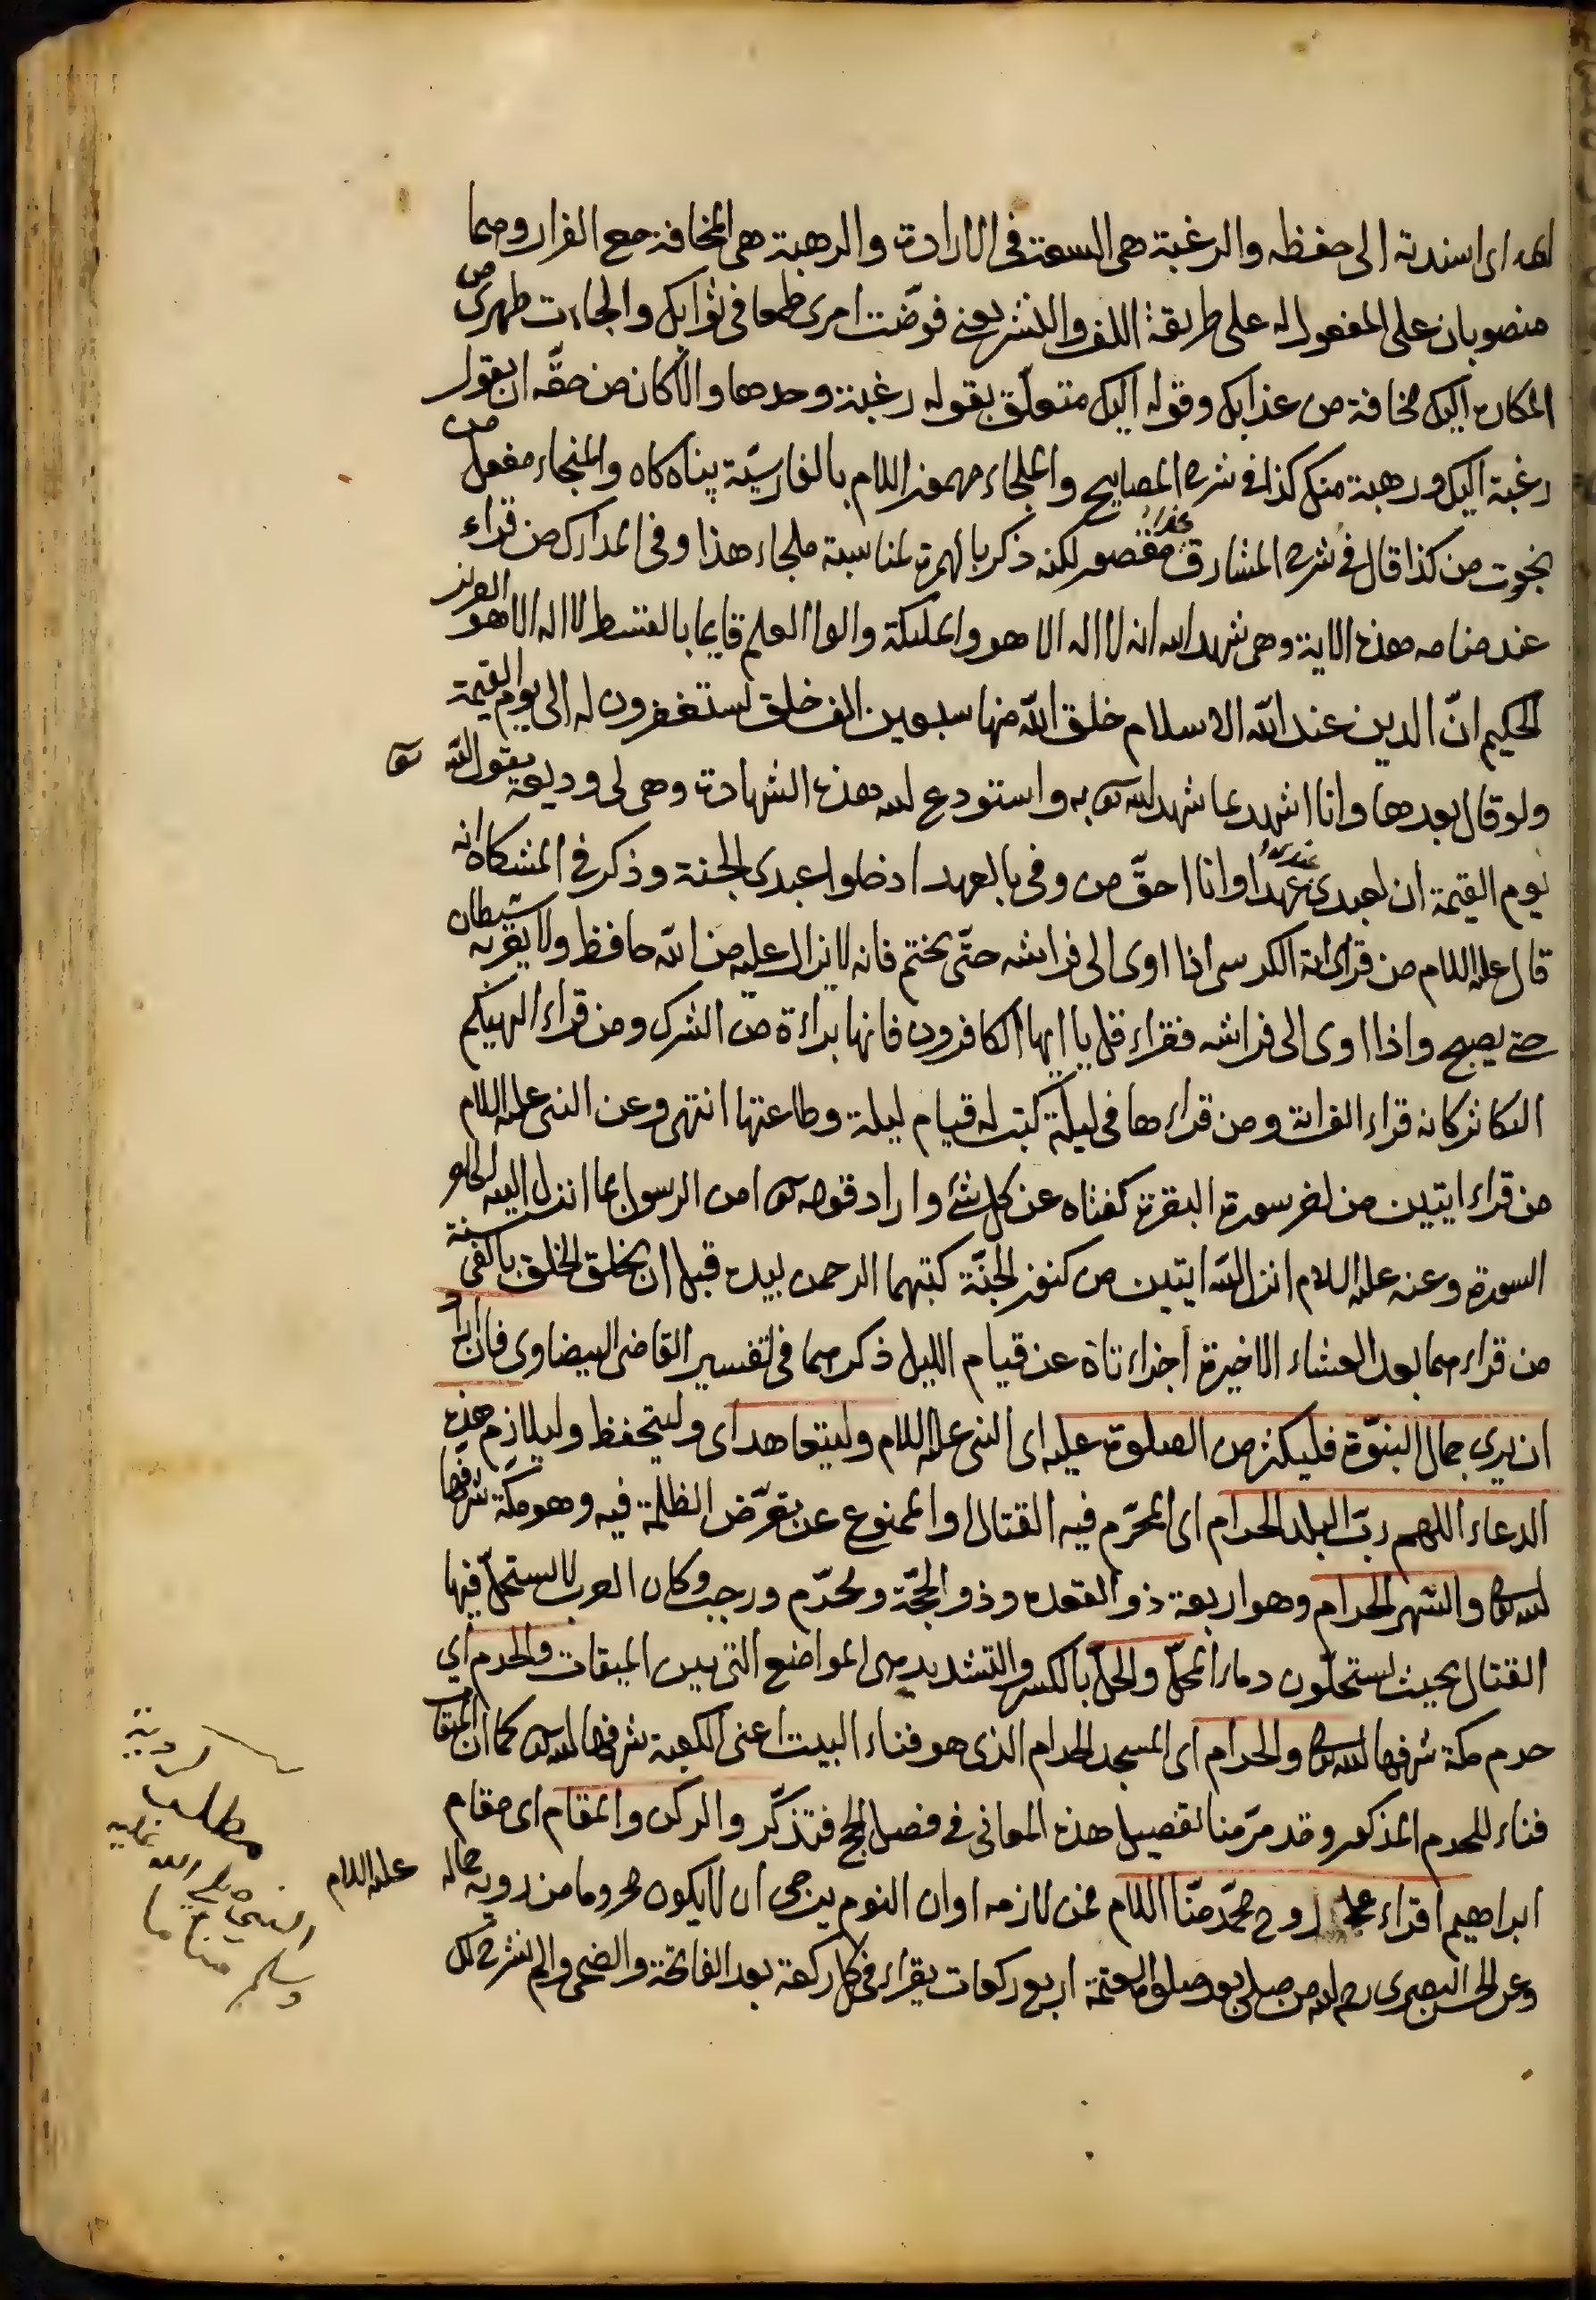 اى اسندته الى حفظه والرغبة هى السعة فى الارادة والرهبة هى المخافة مع الفرار وهما
منصوبان على المفعول له على طريقة اللف والنشر يعنى فوّضت امرى طمعا فى ثوابك والجات ظهرى من
المكاره اليك مخافة من عذابك وقوله اليك متعلّق بقوله رغبة وحدها والا كان من حقّه ان يقول
رغبة اليك ورهبة منك كذا فى شرح المصابيح والملجاء مهموز اللام بالفارسيّة پناه كاه والمنجاء مفعل من
نجوت من كذا قال فى شرح المشارق مقصور لكنه ذكر بالهمزة لمناسبة ملجاء هذا وفى المدارك من قراء
عند منامه هذه الاية وهى شهد الله انه لا اله الا هو والملئكة والوا العلم قايما بالقسط لا اله الا هو العزيز
الحكيم انّ الدين عند الله الاسلام خلق الله منها سبعين الف خلق يستغفرون له الى يوم القيمة
ولو قال بعدها وانا اشهد بما شهد الله به واستودع الله هذه الشهادة وهى لى وديعة يقول الله تع
يوم القيمة ان لعبدى عندى عهدا وانا احقّ من وفى بالعهد ادخلوا عبدى الجنة وذكر فى المشكاة انه
قال عليه السلام من قراء اية الكرسى اذا اوى الى فراشه حتّى يختم فانه لا يزال عليه من الله حافظ ولا يقربه شيطان
حتى يصبح واذا اوى الى فراشه فقراء قل يا ايها الكافرون فانها براءة من الشرك ومن قراء الهيكم
التكاثر كانه قراء الف اية ومن قراءها فى ليلة كتب له قيام ليلة وطاعتها انتهى وعن النبى عليه السلام
من قراء ايتين من اخر سورة البقرة كفتاه عن كل شئ واراد قوله تع امن الرسول بما انزل اليه الى اخر
السورة وعنه عليه السلام انزل الله ايتين من كنوز الجنّة كتبهما الرحمن بيده قبل ان يخلق الخلق بالفى سنة
من قراءهما بعد العشاء الاخيرة اجزاءتاه عن قيام الليل ذكرهما فى تفسير القاضى البيضاوى فان اراد
ان يرى جمال النبوّة فليكثر من الصلوة عليه اى النبى عليه السلام وليتعاهد اى وليتحفظ وليلازم هذه
الدعاء اللهم ربّ البلد الحرام اى المحرّم فيه القتال او الممنوع عن تعرّض الظلمة فيه وهو مكّة شرفها
الله تع والشهر الحرام وهو اربعة ذو القعده وذو الحجّة ومحرّم ورجب وكان العرب لا يستحلّ فيها
القتال بحيث يستحلّون دماء المحلّ والحلّ بالكسر والتشديد هى المواضع التى بين الميقات والحرم اي
حرم مكة شرفها الله تع والحرام اى المسجد الحرام الذى هو فناء البيت اعنى الكعبة شرفها الله تع كما ان الميقات
فناء للحرم المذكور وقد مرّ منا تفصيل هذه المعانى فى فصل الحج فتذكّر والركن والمقام اى مقام
ابراهيم اقراء على روح محمّد منّا السلام فمن لازمه اوان النوم يرجى ان لا يكون محروما من روية جماله عليه السلام
وعن الحسن البصرى رحمه الله من صلى بعد صلوة العتمة اربع ركعات يقراء فى كل ركعة بعد الفاتحة والضحى والم نشرح لك
مطلب
لروية
النبى صلى الله عليه
وسلم مناما